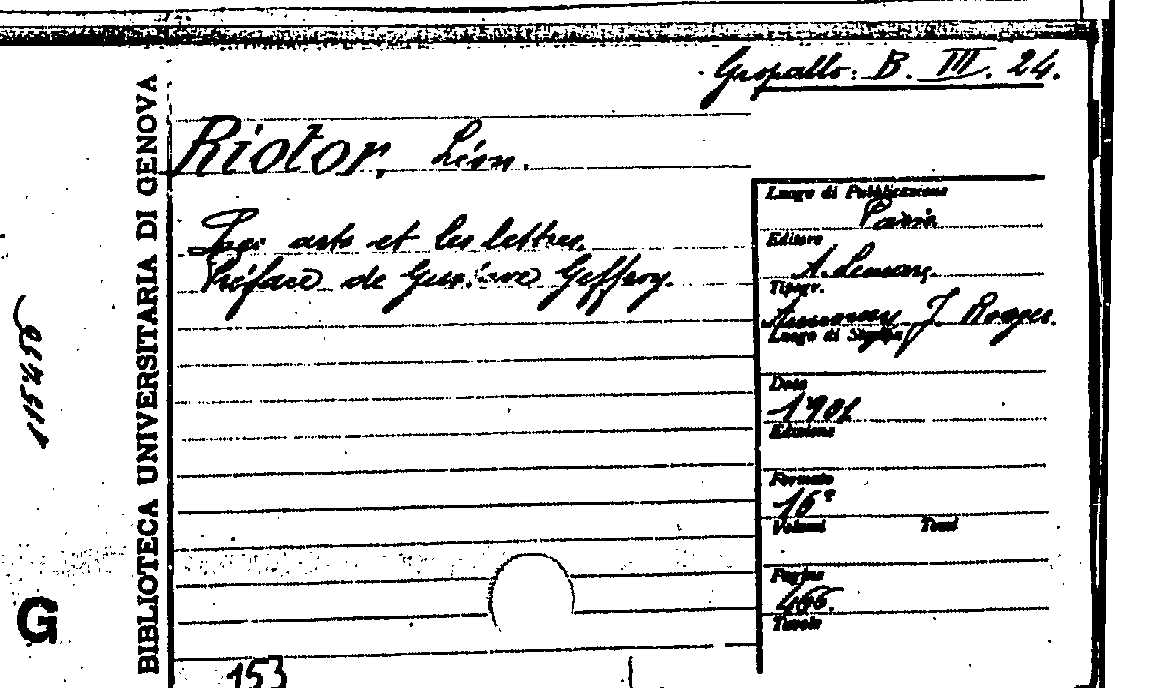 Gropallo. B. III. 24.
Riotor, Léon.
Les arts et les lettres.
Préface de Gustave Geffroy.
Luogo di Pubblicazione
Paris.
Editore
A. Lemerre.
Tipogr.
J. Royer.
Luogo di Stampa
Data
1901
Edizione
Formato
16°
Volumi Tomi
Pagine
466.
Tavole
BIBLIOTECA UNIVERSITARIA DI GENOVA
115450
G
153